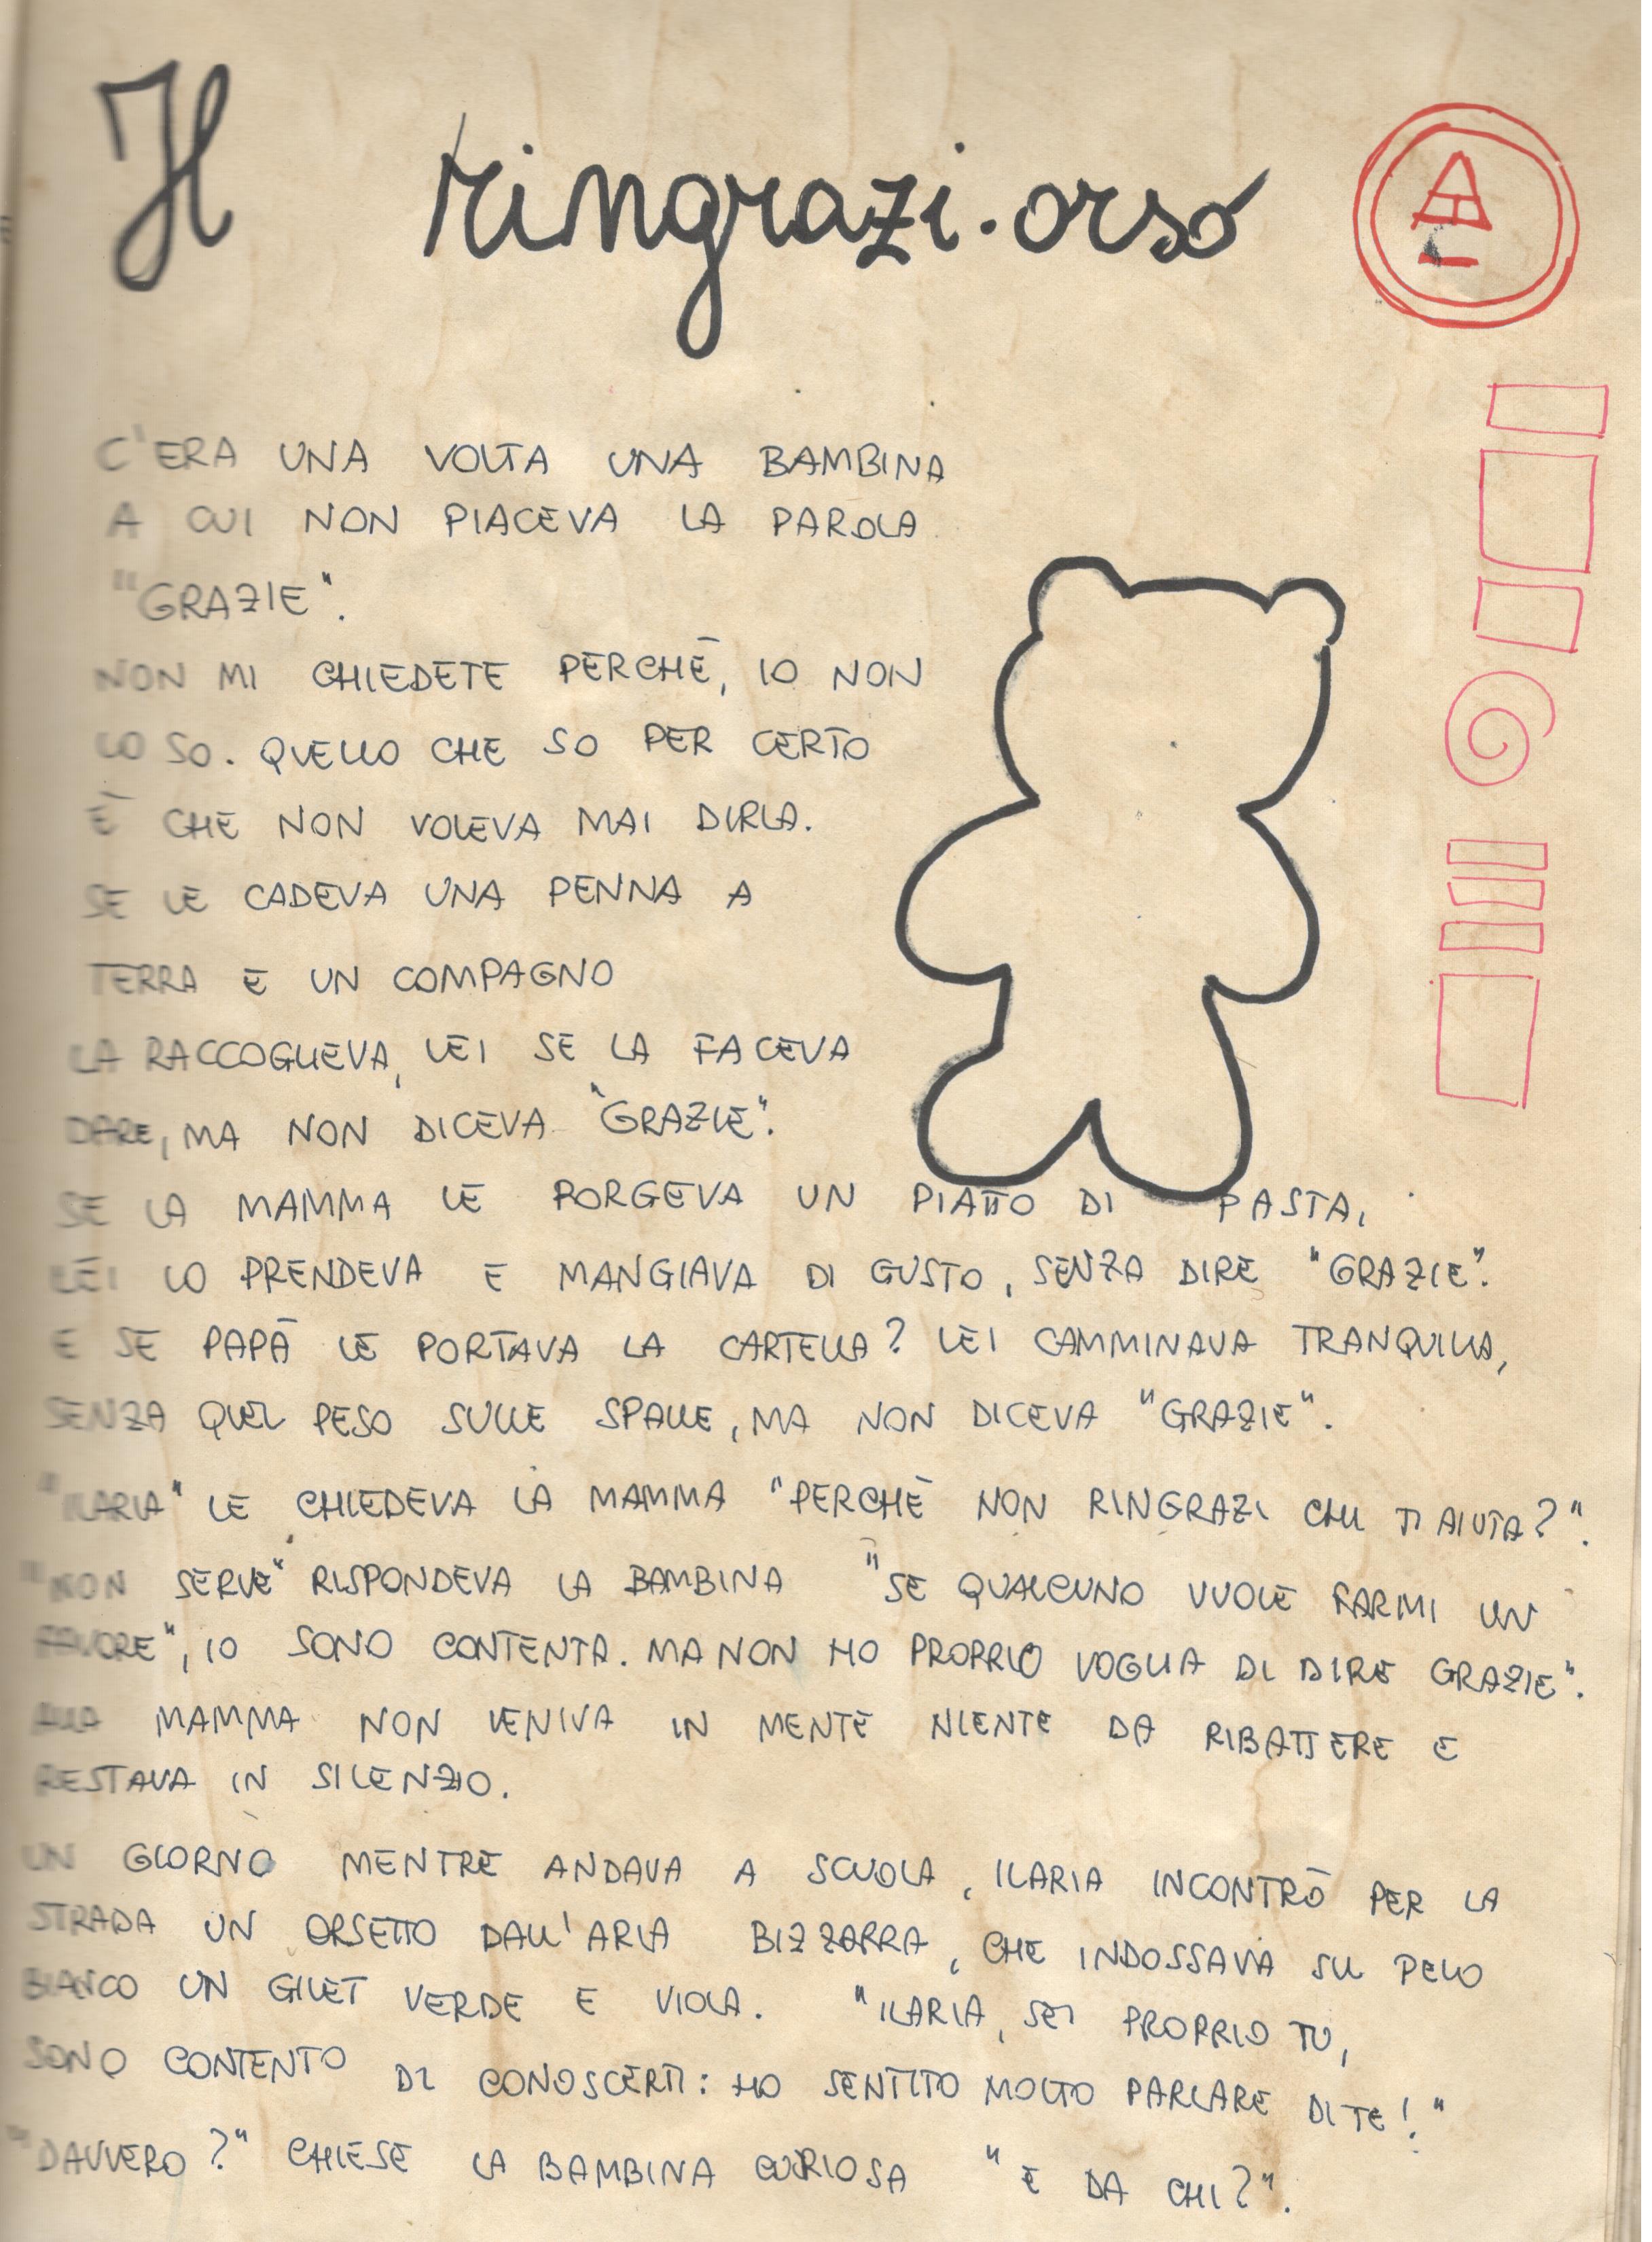 Il ringrazi.orso
A
C'ERA UNA VOLTA UNA BAMBINA
A CUI NON PIACEVA LA PAROLA
"GRAZIE".
NON MI CHIEDETE PERCHÉ, IO NON
LO SO. QUELLO CHE SO PER CERTO
È CHE NON VOLEVA MAI DIRLA.
SE LE CADEVA UNA PENNA A
TERRA E UN COMPAGNO
LA RACCOGLIEVA, LEI SE LA FACEVA
DARE, MA NON DICEVA "GRAZIE".
SE LA MAMMA LE PORGEVA UN PIATTO DI PASTA,
LEI LO PRENDEVA E MANGIAVA DI GUSTO, SENZA DIRE "GRAZIE".
E SE PAPÀ LE PORTAVA LA CARTELLA? LEI CAMMINAVA TRANQUILLA,
SENZA QUEL PESO SULLE SPALLE, MA NON DICEVA "GRAZIE".
"ILARIA" LE CHIEDEVA LA MAMMA "PERCHÈ NON RINGRAZI CHI TI AIUTA?".
"NON SERVE" RISPONDEVA LA BAMBINA "SE QUALCUNO VUOLE FARMI UN
FAVORE", IO SONO CONTENTA. MA NON HO PROPRIO VOGLIA DI DIRE GRAZIE".
ALLA MAMMA NON VENIVA IN MENTE NIENTE DA RIBATTERE E
RESTAVA IN SILENZIO.
UN GIORNO MENTRE ANDAVA A SCUOLA, ILARIA INCONTRÒ PER LA
STRADA UN ORSETTO DALL'ARIA BIZZARRA, CHE INDOSSAVA SUL PELO
BIANCO UN GILET VERDE E VIOLA. "ILARIA, SEI PROPRIO TU,
SONO CONTENTO DI CONOSCERTI: HO SENTITO MOLTO PARLARE DI TE!"
"DAVVERO?" CHIESE LA BAMBINA CURIOSA "E DA CHI?".